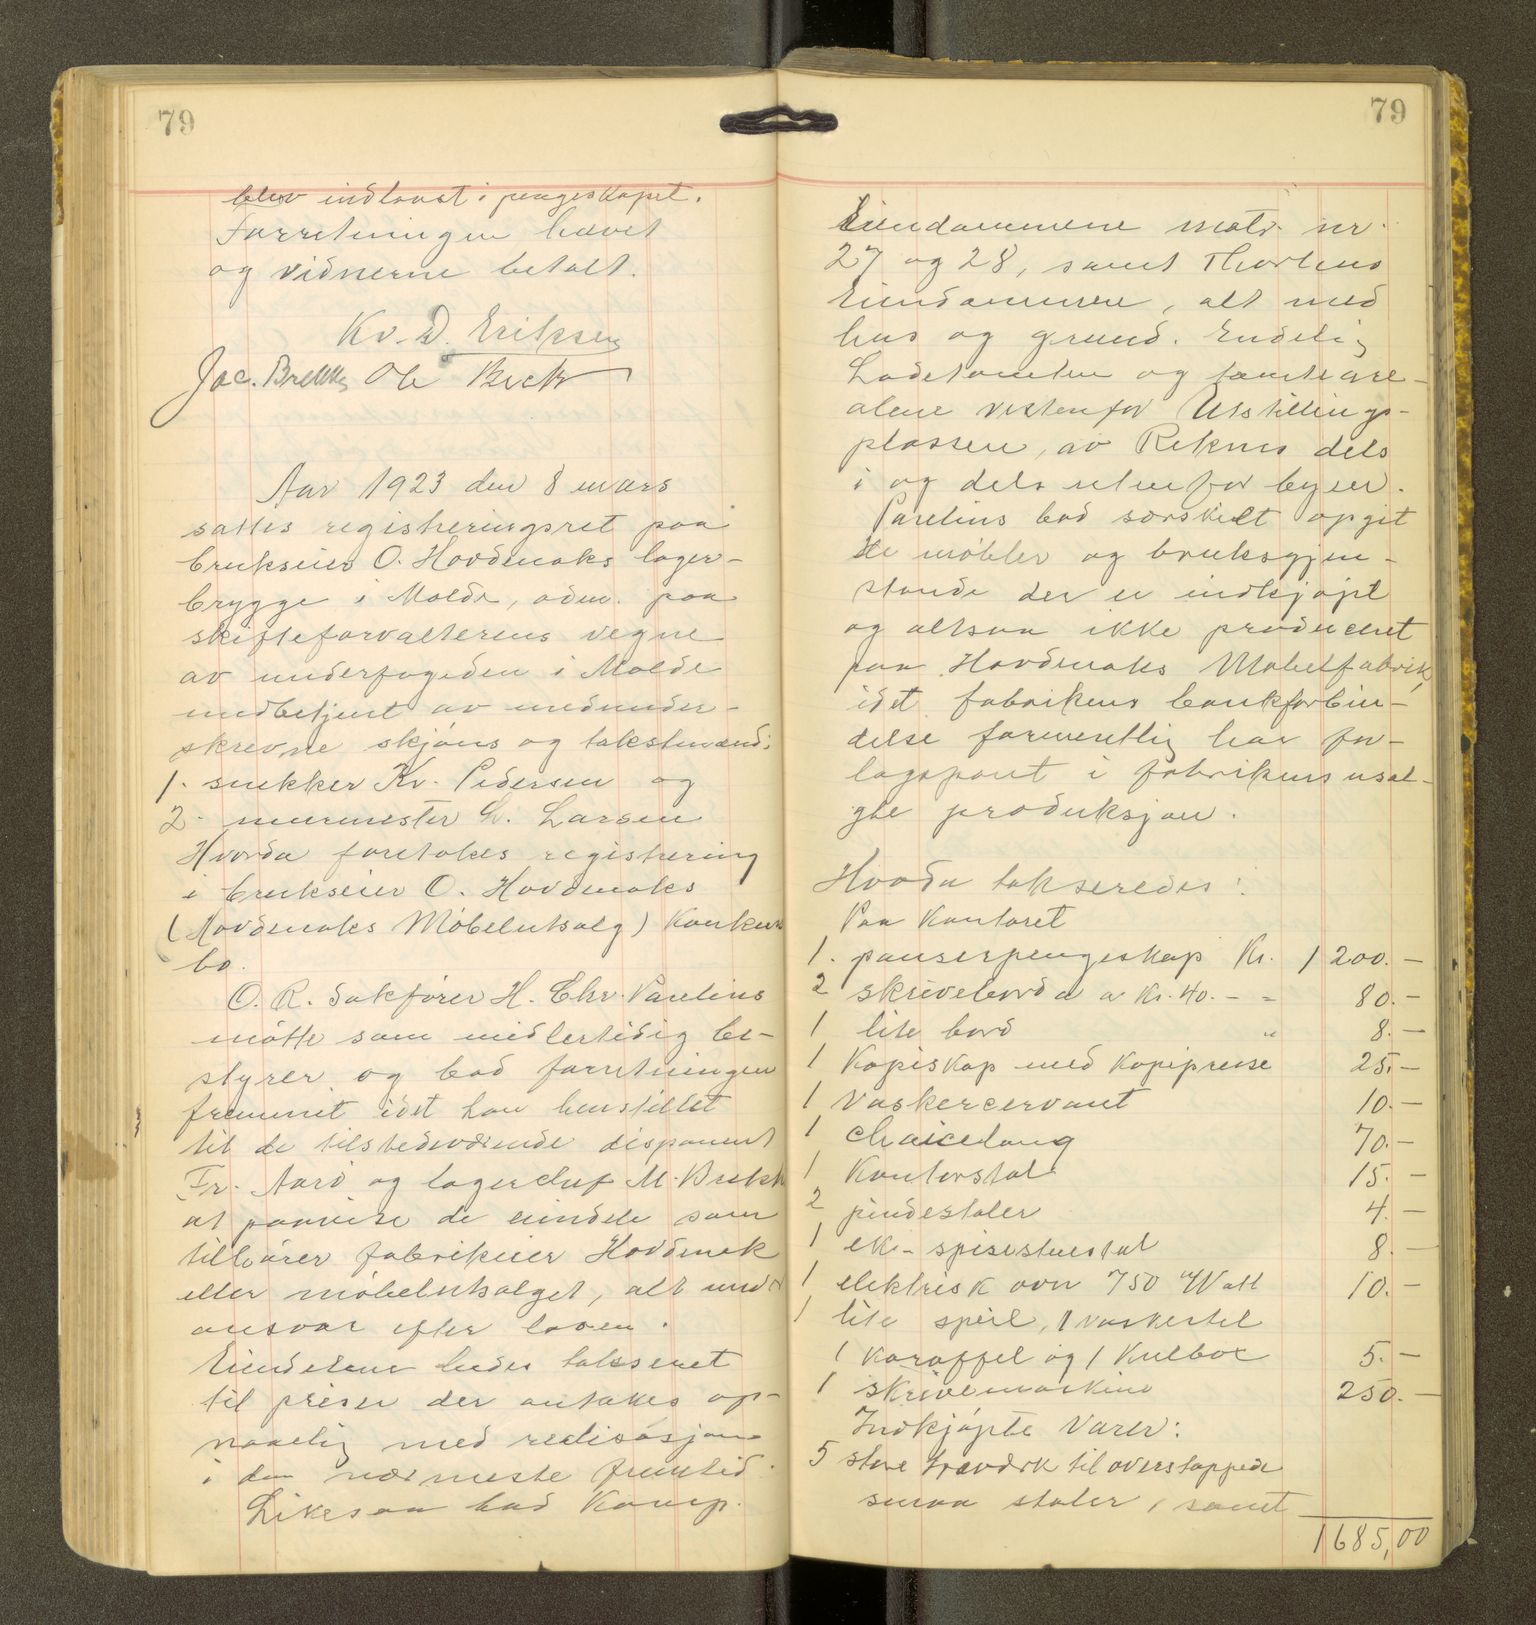 79
blev indlaast i pengeskapet.
Forretningen hævet
og vidnerne betalt.
Kv. D. Eriksen
Jac. Brekke Ole Beck
Aar 1923 den 8 mars
sattes registreringsret paa
brukseier O. Hovdenaks lager-
brygge i Molde, adm. paa
skifteforvalterens vegne
av underfogeden i Molde
medbetjent av medunder-
skrevne skjøns og takstmænd:
1. snekker Kr. Pedersen og
2. murmester L. Larsen
Hvorda foretokes registrering
i brukseier O. Hovdenaks
(Hovdenaks Møbelutsalg) Konkurs
bo.
O. R. Sakfører H. Chr. Paulins
møtte som midlertidig be-
styrer og bad forretningen
fremmet idet han henstillet
til de tilstedeværende disponent
Fr. Aarö og lagerchef M. Brekke
at paavise de eiendele som
tilhører fabrikeier Hovdenak
eller møbelutsalget, alt under
ansvar efter loven.
Eiendelene bedes taksert
til priser der antakes op-
naaelig med realisasjon
i den nærmeste fremtid.
Likesaa bad Komp.
79
Eiendommene matr. nr.
27 og 28, samt
Eiendommene, alt med
hus og grund. Endelig
Ladetomten og tomteare-
alene vestenfor Utstillings-
plassen, av Reknes dels
i og dels utenfor byen.
Paulins bad særskilt opgit
de møbler og bruksgjen-
stande der er indkjøpt
og altsaa ikke produceret
paa Hovdenaks Møbelfabrik,
idet fabrikens bankforbin-
delse formentlig har for-
lagspant i fabrikens usol-
gte produksjon.
Hvorda takseredes:
Paa Kontoret
1. panserpengeskap Kr. 1200.-
2 skrivebord a Kr. 40.- - 80.-
1 lite bord " 8.-
1 Kopiskap med Kopipresse 25.-
1 Vaskercervant 10.-
1 chaicelong 70.-
1 Kontorstol 15.-
2 pindestoler 4.-
1 eke-spisestuestol 8.-
1 elektrisk ovn 750 Watt 10.-
1 lite speil, 1 vaskestel
1 Karaffel og 1 Kulbox 5.-
1 skrivemaskine 250.-
Indkjøpte Varer:
5 store træværk til overstoppede
smaa stoler, samt
1685,00